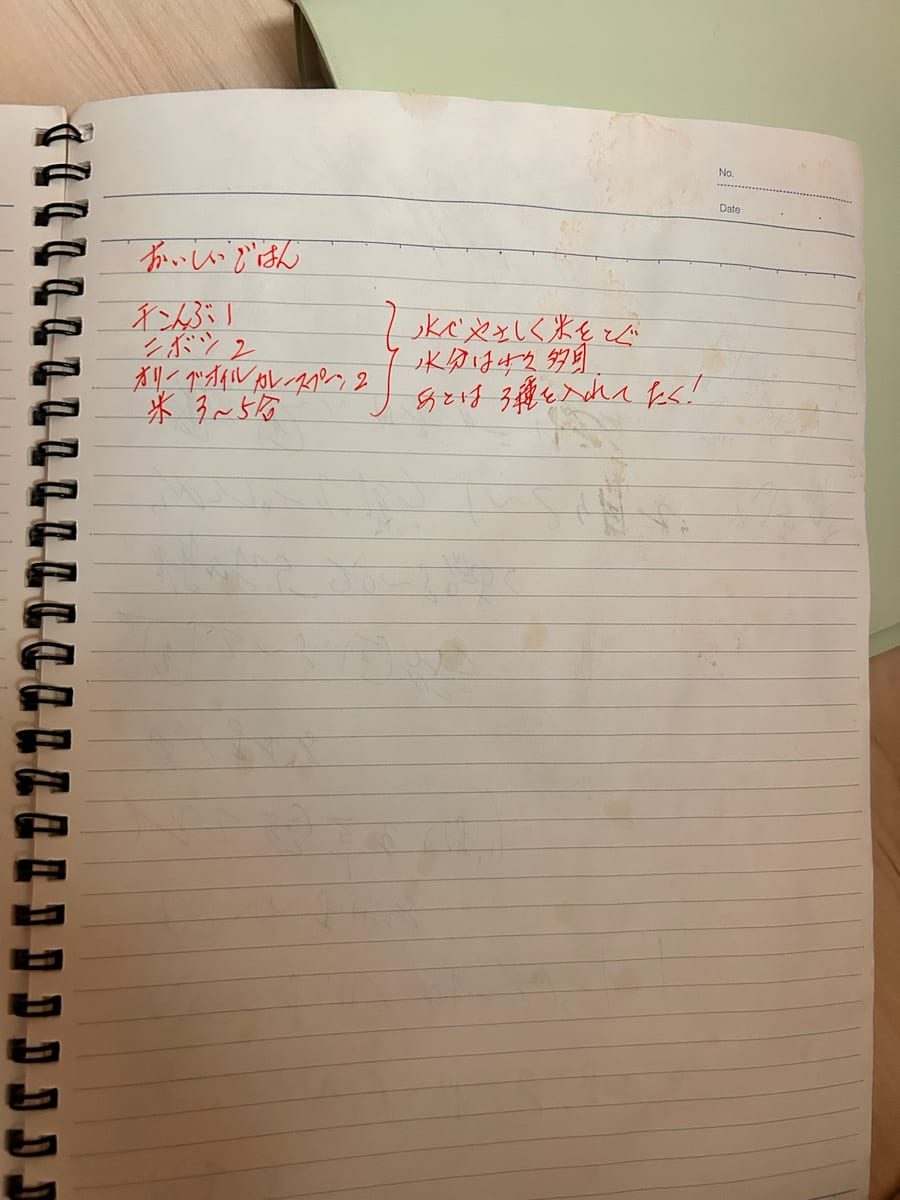 No.
Date
おいしいごはん
干こんぶ 1
ニボシ 2
オリーブオイル カレースプーン 2
米 3〜5合
水でやさしく米をとぐ
水分は少々多目
あとは3種を入れてたく!